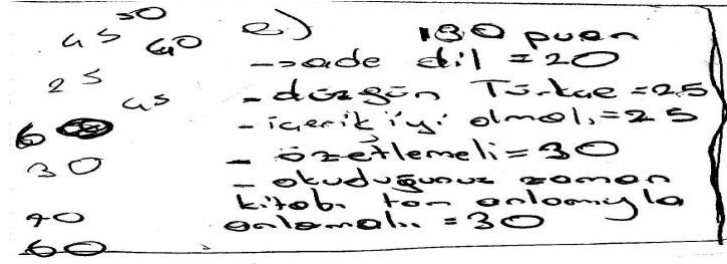 50
45
60
25
45
60
30
90
60
e) 130 puan
-sade dil = 20
- düzgün Türkçe = 25
- içerik iyi olmalı = 25
- özetlemeli = 30
- okuduğunuz zaman
kitabı tam anlamıyla
anlamalı = 30